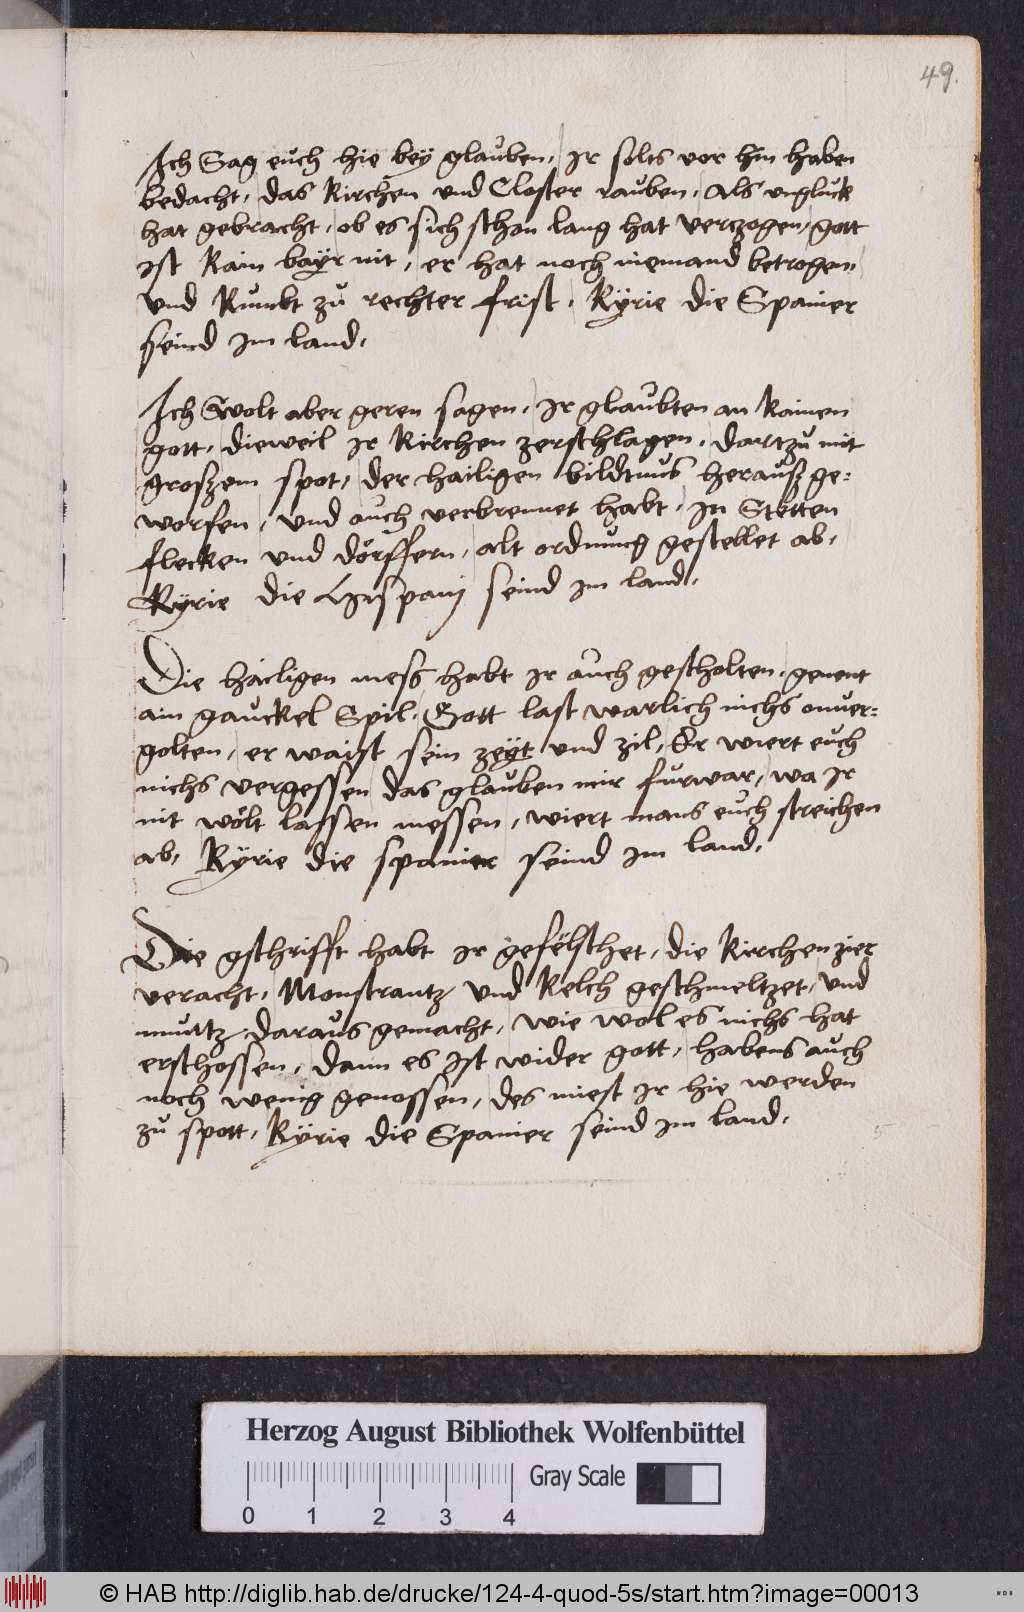 49.
Ich Sag euch hie bey glauben, ir solts vor hin haben
bedacht, das Kirchen und Closter rauben, Als ungluck
hat gebracht, ob es sich schon lang hat vertzogen, gott
ist Kain bayr nit, er hat noch niemand betrogen,
und Kumbt zu rechter frist, Kÿrie die Spanier
seind im land,
Ich Wolt aber geren sagen, ir glaubten an Kainen
gott, dieweil ir Kirchen zerschlagen, dartzu mit
groszem spot, der hailigen bildtnus herausz ge=
worfen, und auch verbrennet habt, in Stetten
flecken und dörffern, alt ordnung gestellet ab,
Kÿrie die Hispanj seind im land,
Die hailigen mess habt ir auch gescholten, genent
ain gauckel Spil, Gott last warlich nichs onver=
golten, er waist sein zeyt und zil, Er wiert euch
nichs vergessen das glauben mir furwar, wa ir
nit wölt lassen messen, wiert mans euch streichen
ab, Kÿrie die spanier seind im land,
Die gschrifft habt ir gefelschet, die Kirchen zier
veracht, Monstrantz und Kelch geschmeltzet, und
muntz daraus gemacht, wie wol es nichs hat
erschossen, dann es ist wider gott, habens auch
noch wenig genossen, des miest ir hie werden
zu spott, Kÿrie die Spanier seind im land,
Herzog August Bibliothek Wolfenbüttel
Gray Scale
0 1 2 3 4
© HAB http://diglib.hab.de/drucke/124-4-quod-5s/start.htm?image=00013